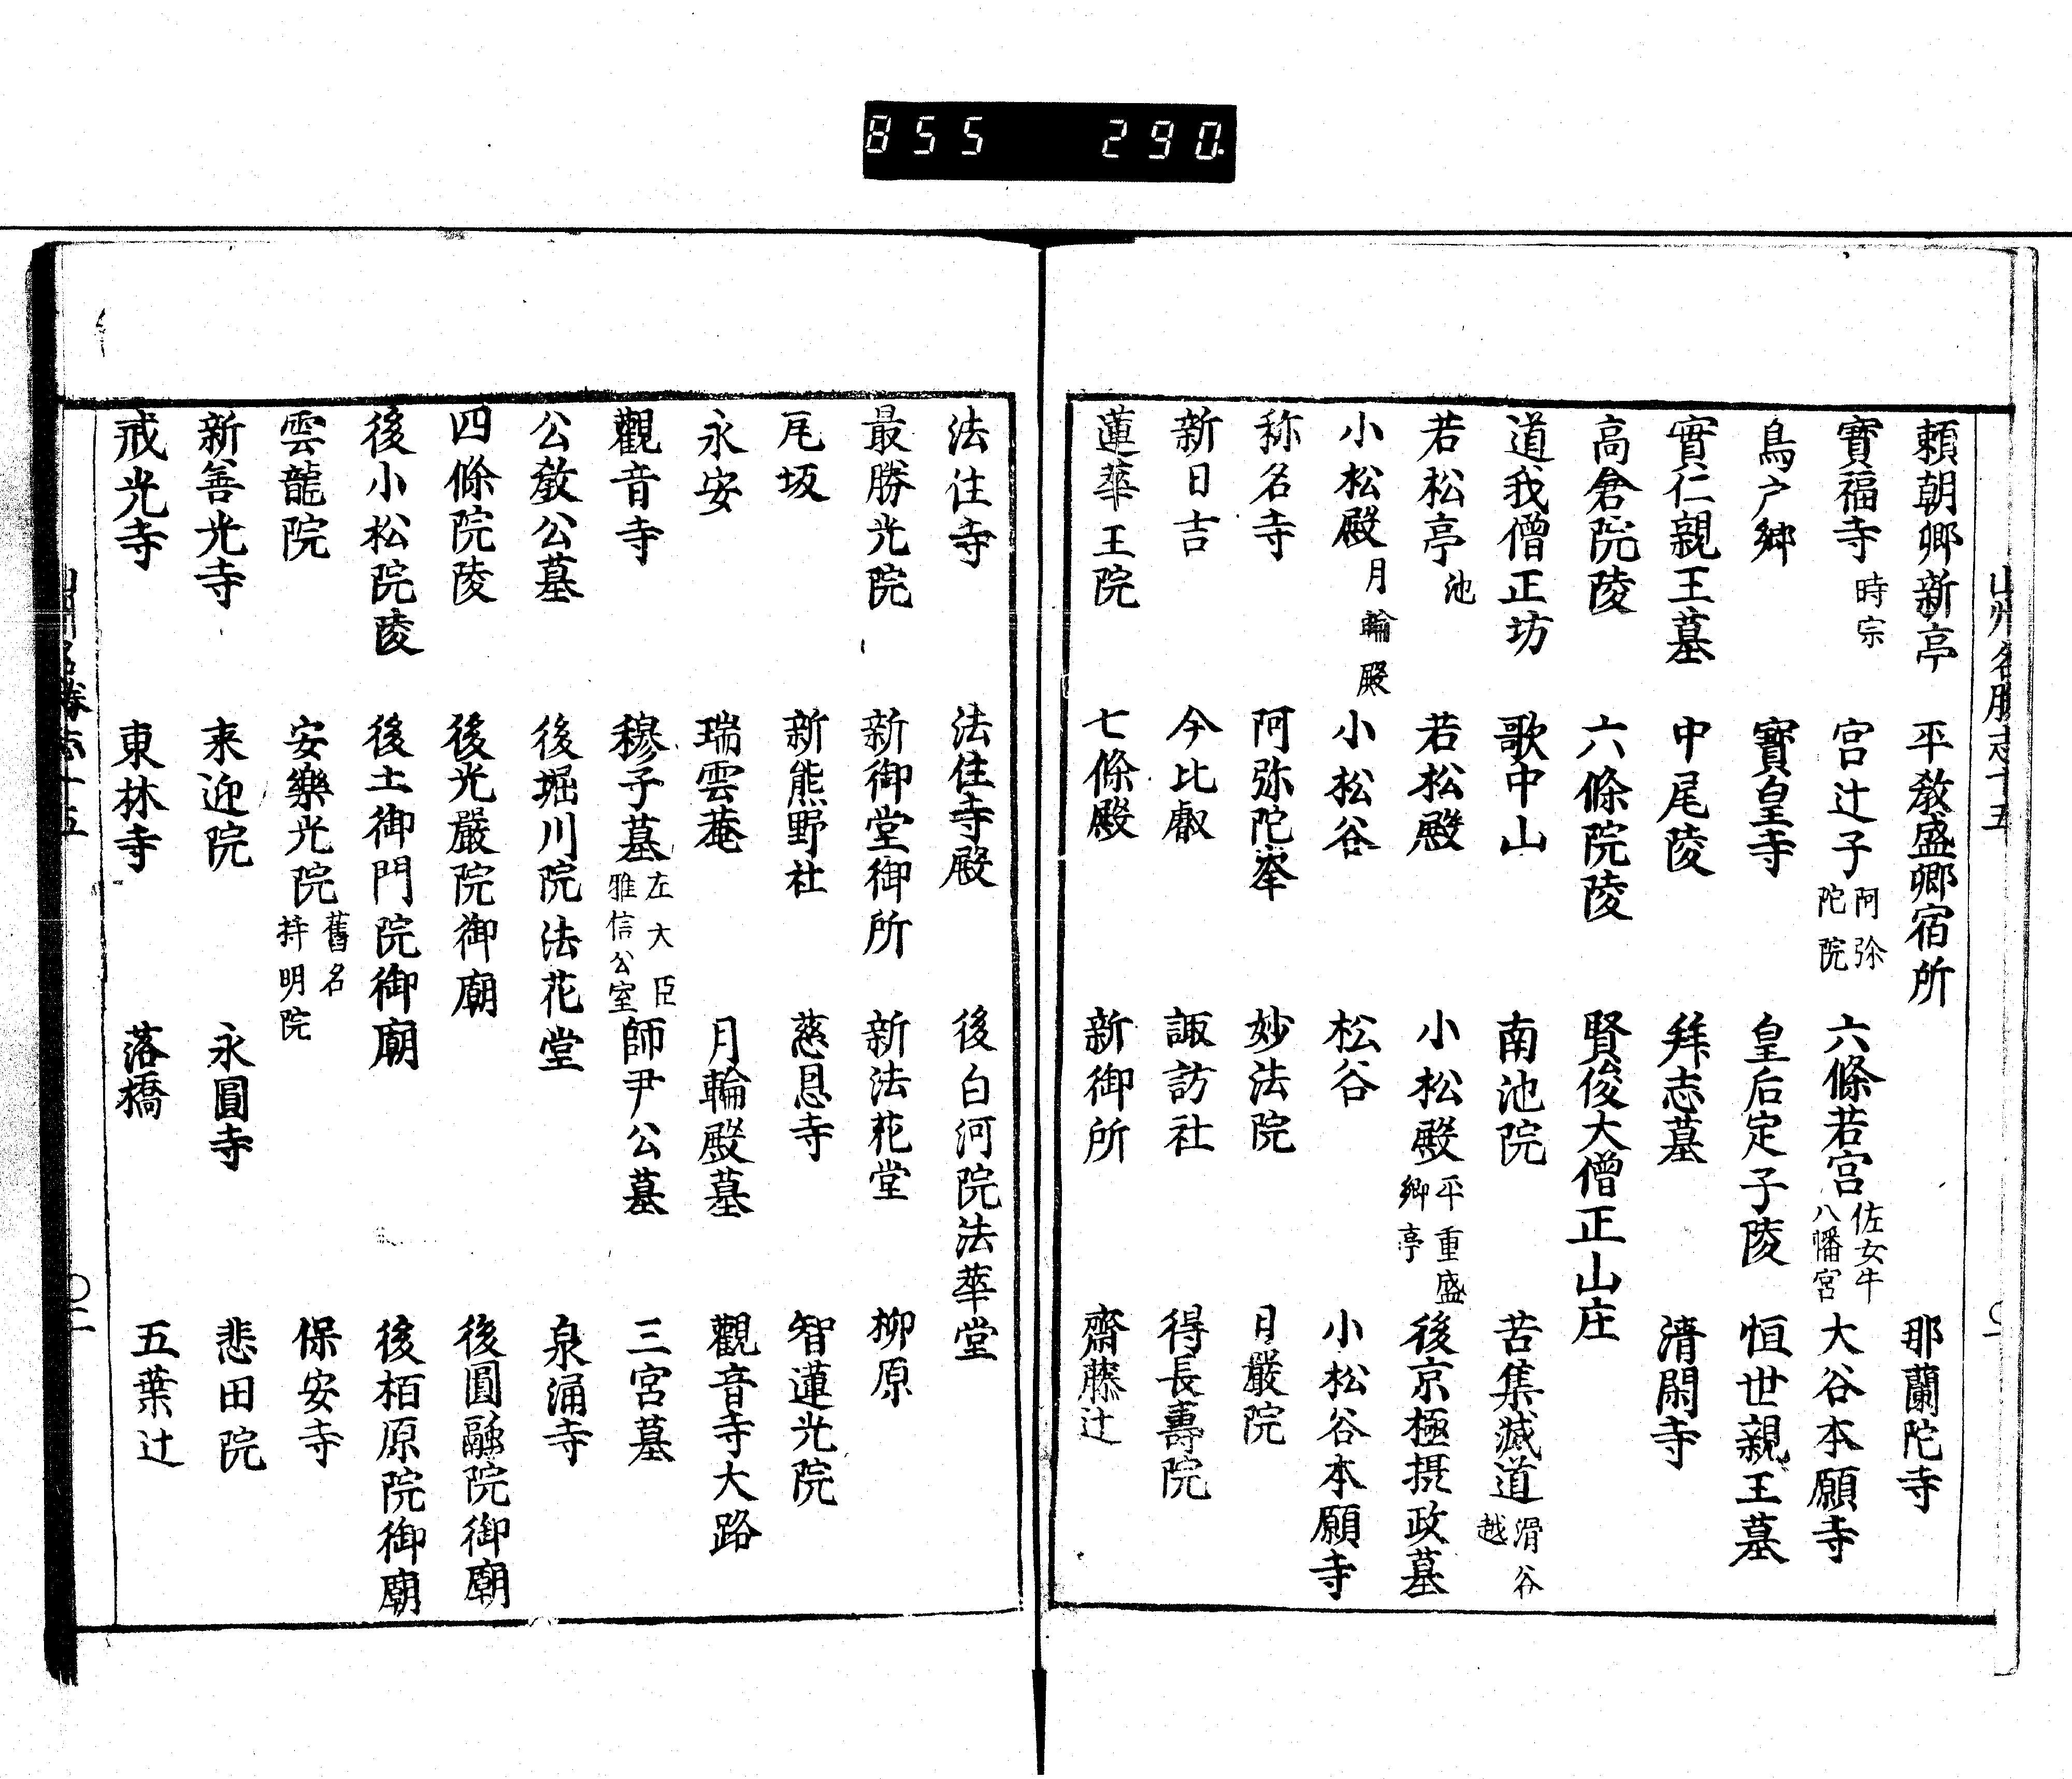 855 290
山州名勝志十五
頼朝卿新亭 平敎盛卿宿所 那蘭陀寺
寶福寺 時宗 宮辻子 阿弥陀院 六條若宮 佐女牛八幡宮 大谷本願寺
鳥戸郷 寶皇寺 皇后定子陵 恒世親王墓
實仁親王墓 中尾陵 拜志墓 清閑寺
高倉院陵 六條院陵 賢俊大僧正山庄
道我僧正坊 歌中山 南池院 苦集滅道 滑谷越
若松亭 池 若松殿 小松殿 平重盛卿亭 後京極摂政墓
小松殿 月輪殿 小松谷 松谷 小松谷本願寺
称名寺 阿弥陀峯 妙法院 日嚴院
新日吉 今比叡 諏訪社 得長壽院
蓮華王院 七條殿 新御所 齋藤辻
法住寺 法住寺殿 後白河院法華堂
最勝光院 新御堂御所 新法花堂 柳原
尾坂 新熊野社 慈恩寺 智蓮光院
永安 瑞雲菴 月輪殿墓 觀音寺大路
觀音寺 穆子墓 左大臣雅信公室 師尹公墓 三宮墓
公敎公墓 後堀川院法花堂 泉涌寺
四條院陵 後光嚴院御廟 後圓融院御廟
後小松院陵 後土御門院御廟 後栢原院御廟
雲龍院 安樂光院 舊名持明院 保安寺
新善光寺 来迎院 永圓寺 悲田院
戒光寺 東林寺 落橋 五葉辻
山州名勝志十五 〇二